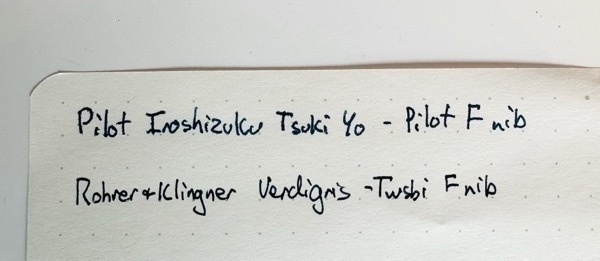 Pilot Iroshizuku Tsuki Yo - Pilot F nib
Rohrer+Klingner Verdigris - Twsbi F nib